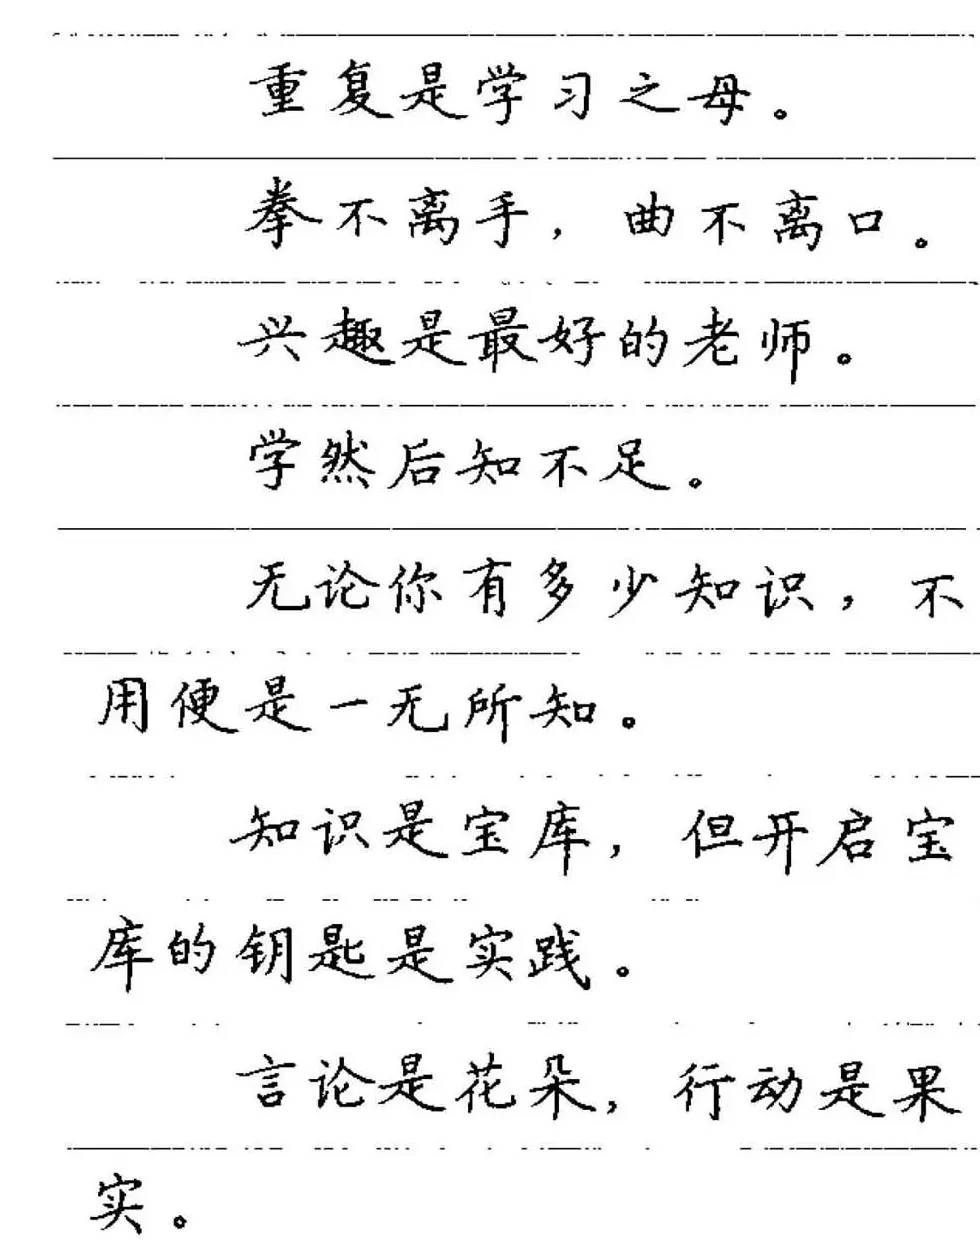 重复是学习之母。
拳不离手，曲不离口。
兴趣是最好的老师。
学然后知不足。
无论你有多少知识，不
用便是一无所知。
知识是宝库，但开启宝
库的钥匙是实践。
言论是花朵，行动是果
实。